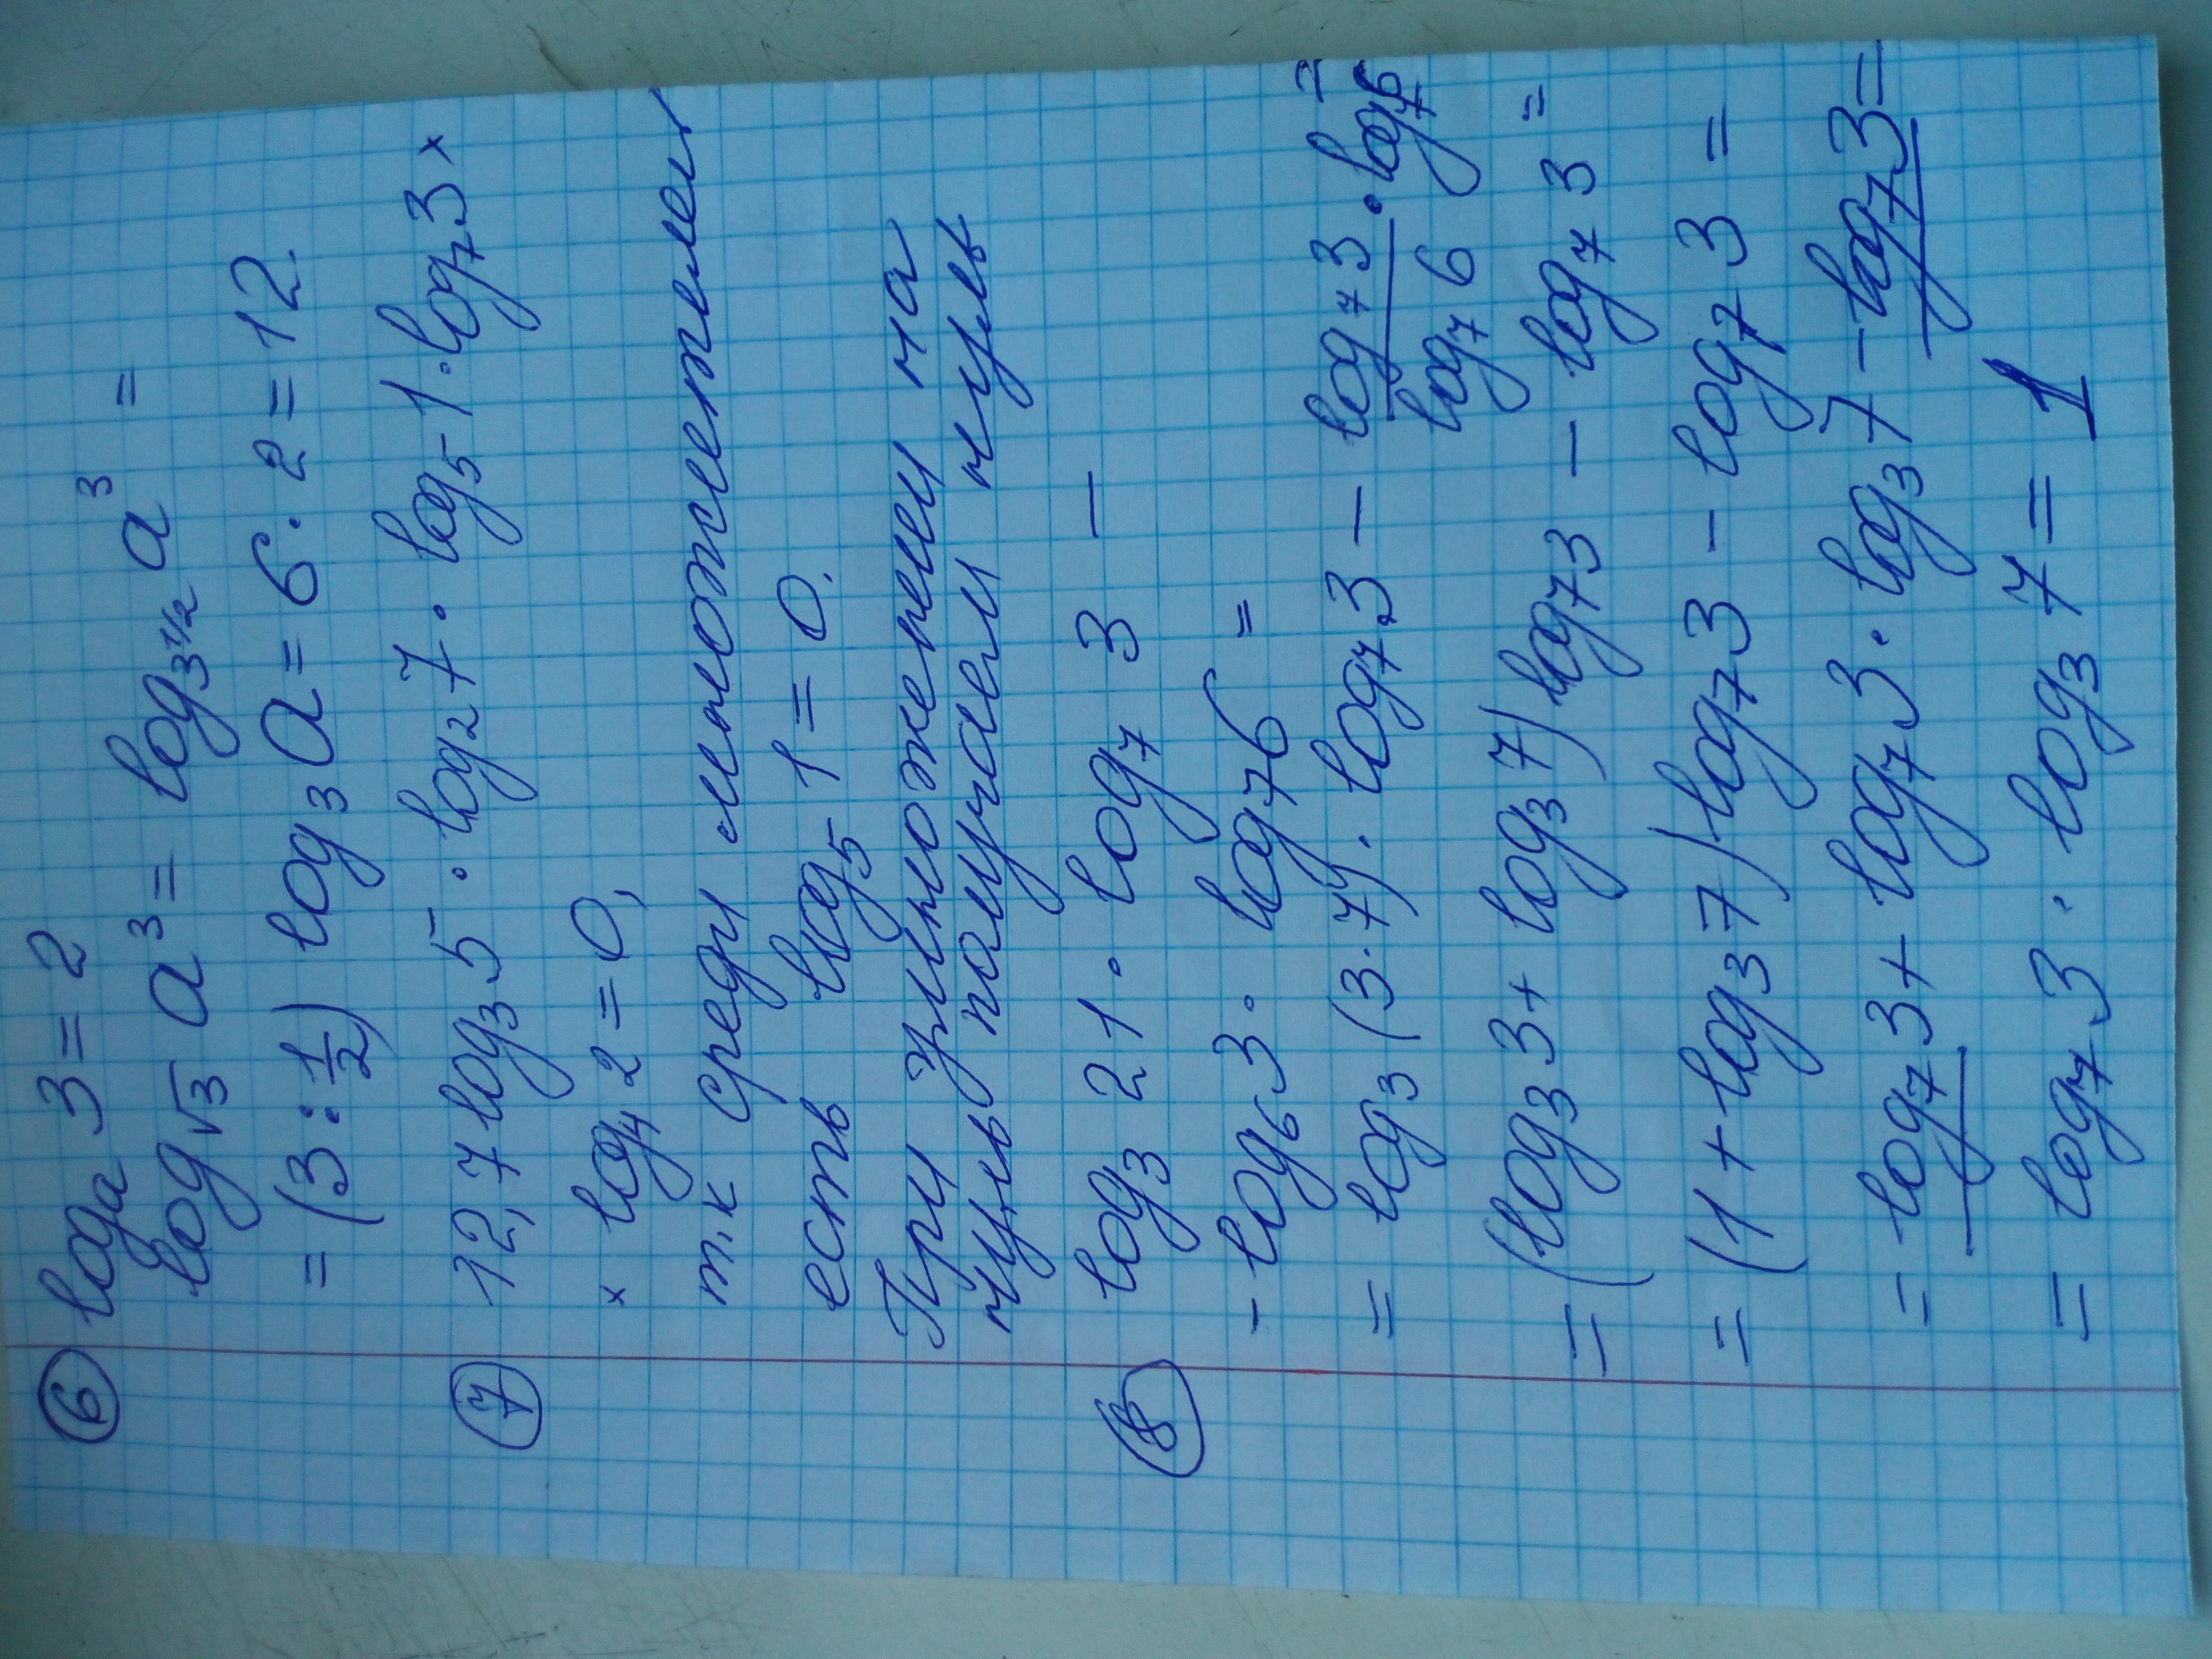 ⑥ logₐ 3 = 2
log√3 a³ = log₃1/2 a³ =
= (3 : 1/2) log₃ a = 6 · 2 = 12.
⑦ 12,7 log₃5 · log₂7 · log₅1 · log₇3 ×
× log₄2 = 0,
т.к среди множителей
есть log₅ 1 = 0.
При умножении на
нуль получаем нуль
⑧ log₃ 21 · log₇ 3 −
− log₆3 · log₇6 =
= log₃(3·7) · log₇3 − log₇3/log₇6 · log₇6 =
= (log₃3 + log₃7) log₇3 − log₇3 =
= (1 + log₃7) log₇3 − log₇3 =
= log₇3 + log₇3 · log₃7 − log₇3 =
= log₇3 · log₃7 = 1